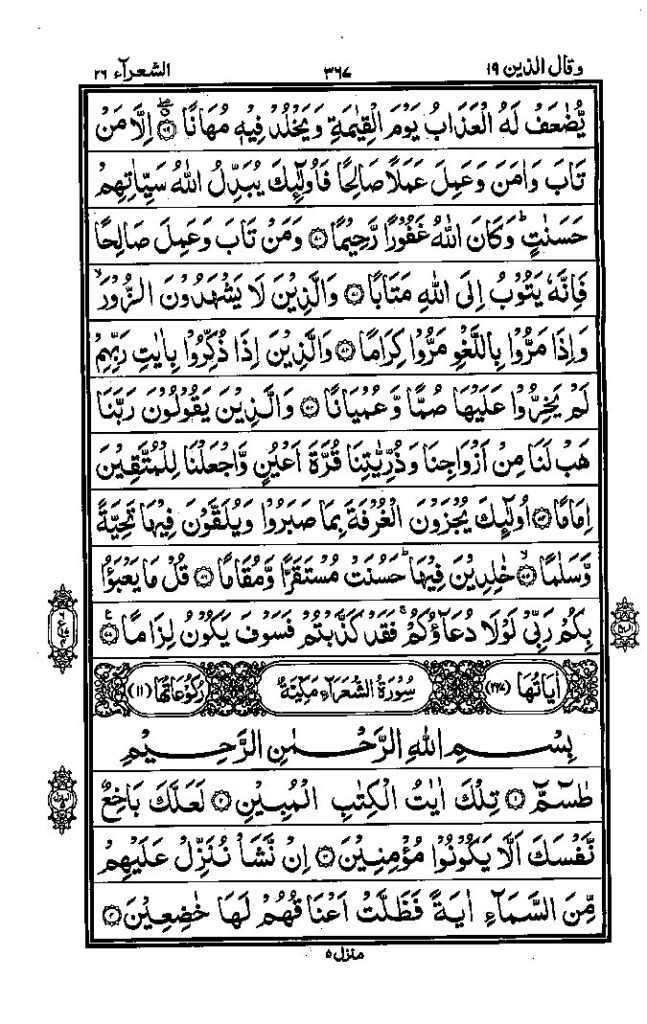 وقال الذین ۱۹ ۳۶۷ الشعرآء ۲۶
یُّضٰعَفْ لَهُ الْعَذَابُ یَوْمَ الْقِیٰمَةِ وَیَخْلُدْ فِیْهٖ مُهَانًا ۝۶۹ اِلَّا مَنْ
تَابَ وَاٰمَنَ وَعَمِلَ عَمَلًا صَالِحًا فَاُولٰٓئِكَ یُبَدِّلُ اللّٰهُ سَیِّاٰتِهِمْ
حَسَنٰتٍ ؕ وَكَانَ اللّٰهُ غَفُوْرًا رَّحِیْمًا ۝۷۰ وَمَنْ تَابَ وَعَمِلَ صَالِحًا
فَاِنَّهٗ یَتُوْبُ اِلَی اللّٰهِ مَتَابًا ۝۷۱ وَالَّذِیْنَ لَا یَشْهَدُوْنَ الزُّوْرَ ۙ
وَاِذَا مَرُّوْا بِاللَّغْوِ مَرُّوْا كِرَامًا ۝۷۲ وَالَّذِیْنَ اِذَا ذُكِّرُوْا بِاٰیٰتِ رَبِّهِمْ
لَمْ یَخِرُّوْا عَلَیْهَا صُمًّا وَّعُمْیَانًا ۝۷۳ وَالَّذِیْنَ یَقُوْلُوْنَ رَبَّنَا
هَبْ لَنَا مِنْ اَزْوَاجِنَا وَذُرِّیّٰتِنَا قُرَّةَ اَعْیُنٍ وَّاجْعَلْنَا لِلْمُتَّقِیْنَ
اِمَامًا ۝۷۴ اُولٰٓئِكَ یُجْزَوْنَ الْغُرْفَةَ بِمَا صَبَرُوْا وَیُلَقَّوْنَ فِیْهَا تَحِیَّةً
وَّسَلٰمًا ۝۷۵ ۙ خٰلِدِیْنَ فِیْهَا ؕ حَسُنَتْ مُسْتَقَرًّا وَّمُقَامًا ۝۷۶ قُلْ مَا یَعْبَؤُا
بِكُمْ رَبِّیْ لَوْلَا دُعَآؤُكُمْ ۚ فَقَدْ كَذَّبْتُمْ فَسَوْفَ یَكُوْنُ لِزَامًا ۝۷۷
اٰیَاتُهَا (۲۲۷) سُوْرَةُ الشُّعَرَآءِ مَكِّیَّةٌ رُكُوْعَاتُهَا (۱۱)
بِسْمِ اللّٰهِ الرَّحْمٰنِ الرَّحِیْمِ
طٰسٓمّٓ ۝۱ تِلْكَ اٰیٰتُ الْكِتٰبِ الْمُبِیْنِ ۝۲ لَعَلَّكَ بَاخِعٌ
نَّفْسَكَ اَلَّا یَكُوْنُوْا مُؤْمِنِیْنَ ۝۳ اِنْ نَّشَاْ نُنَزِّلْ عَلَیْهِمْ
مِّنَ السَّمَآءِ اٰیَةً فَظَلَّتْ اَعْنَاقُهُمْ لَهَا خٰضِعِیْنَ ۝۴
منزل ۵